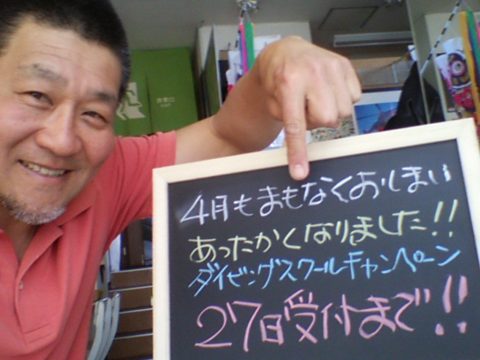 非常口
4月もまもなくおしまい
あったかくなりました!!
ダイビングスクールキャンペーン
27日受付まで!!